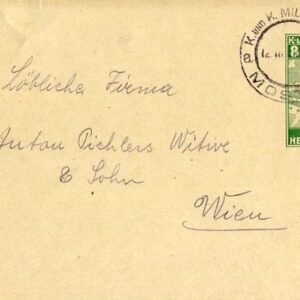 K. UND K. MIL
12. III
a
MOS
K.u
8
HE
Löbliche Firma
Anton Pichlers Witwe
& Sohn
Wien